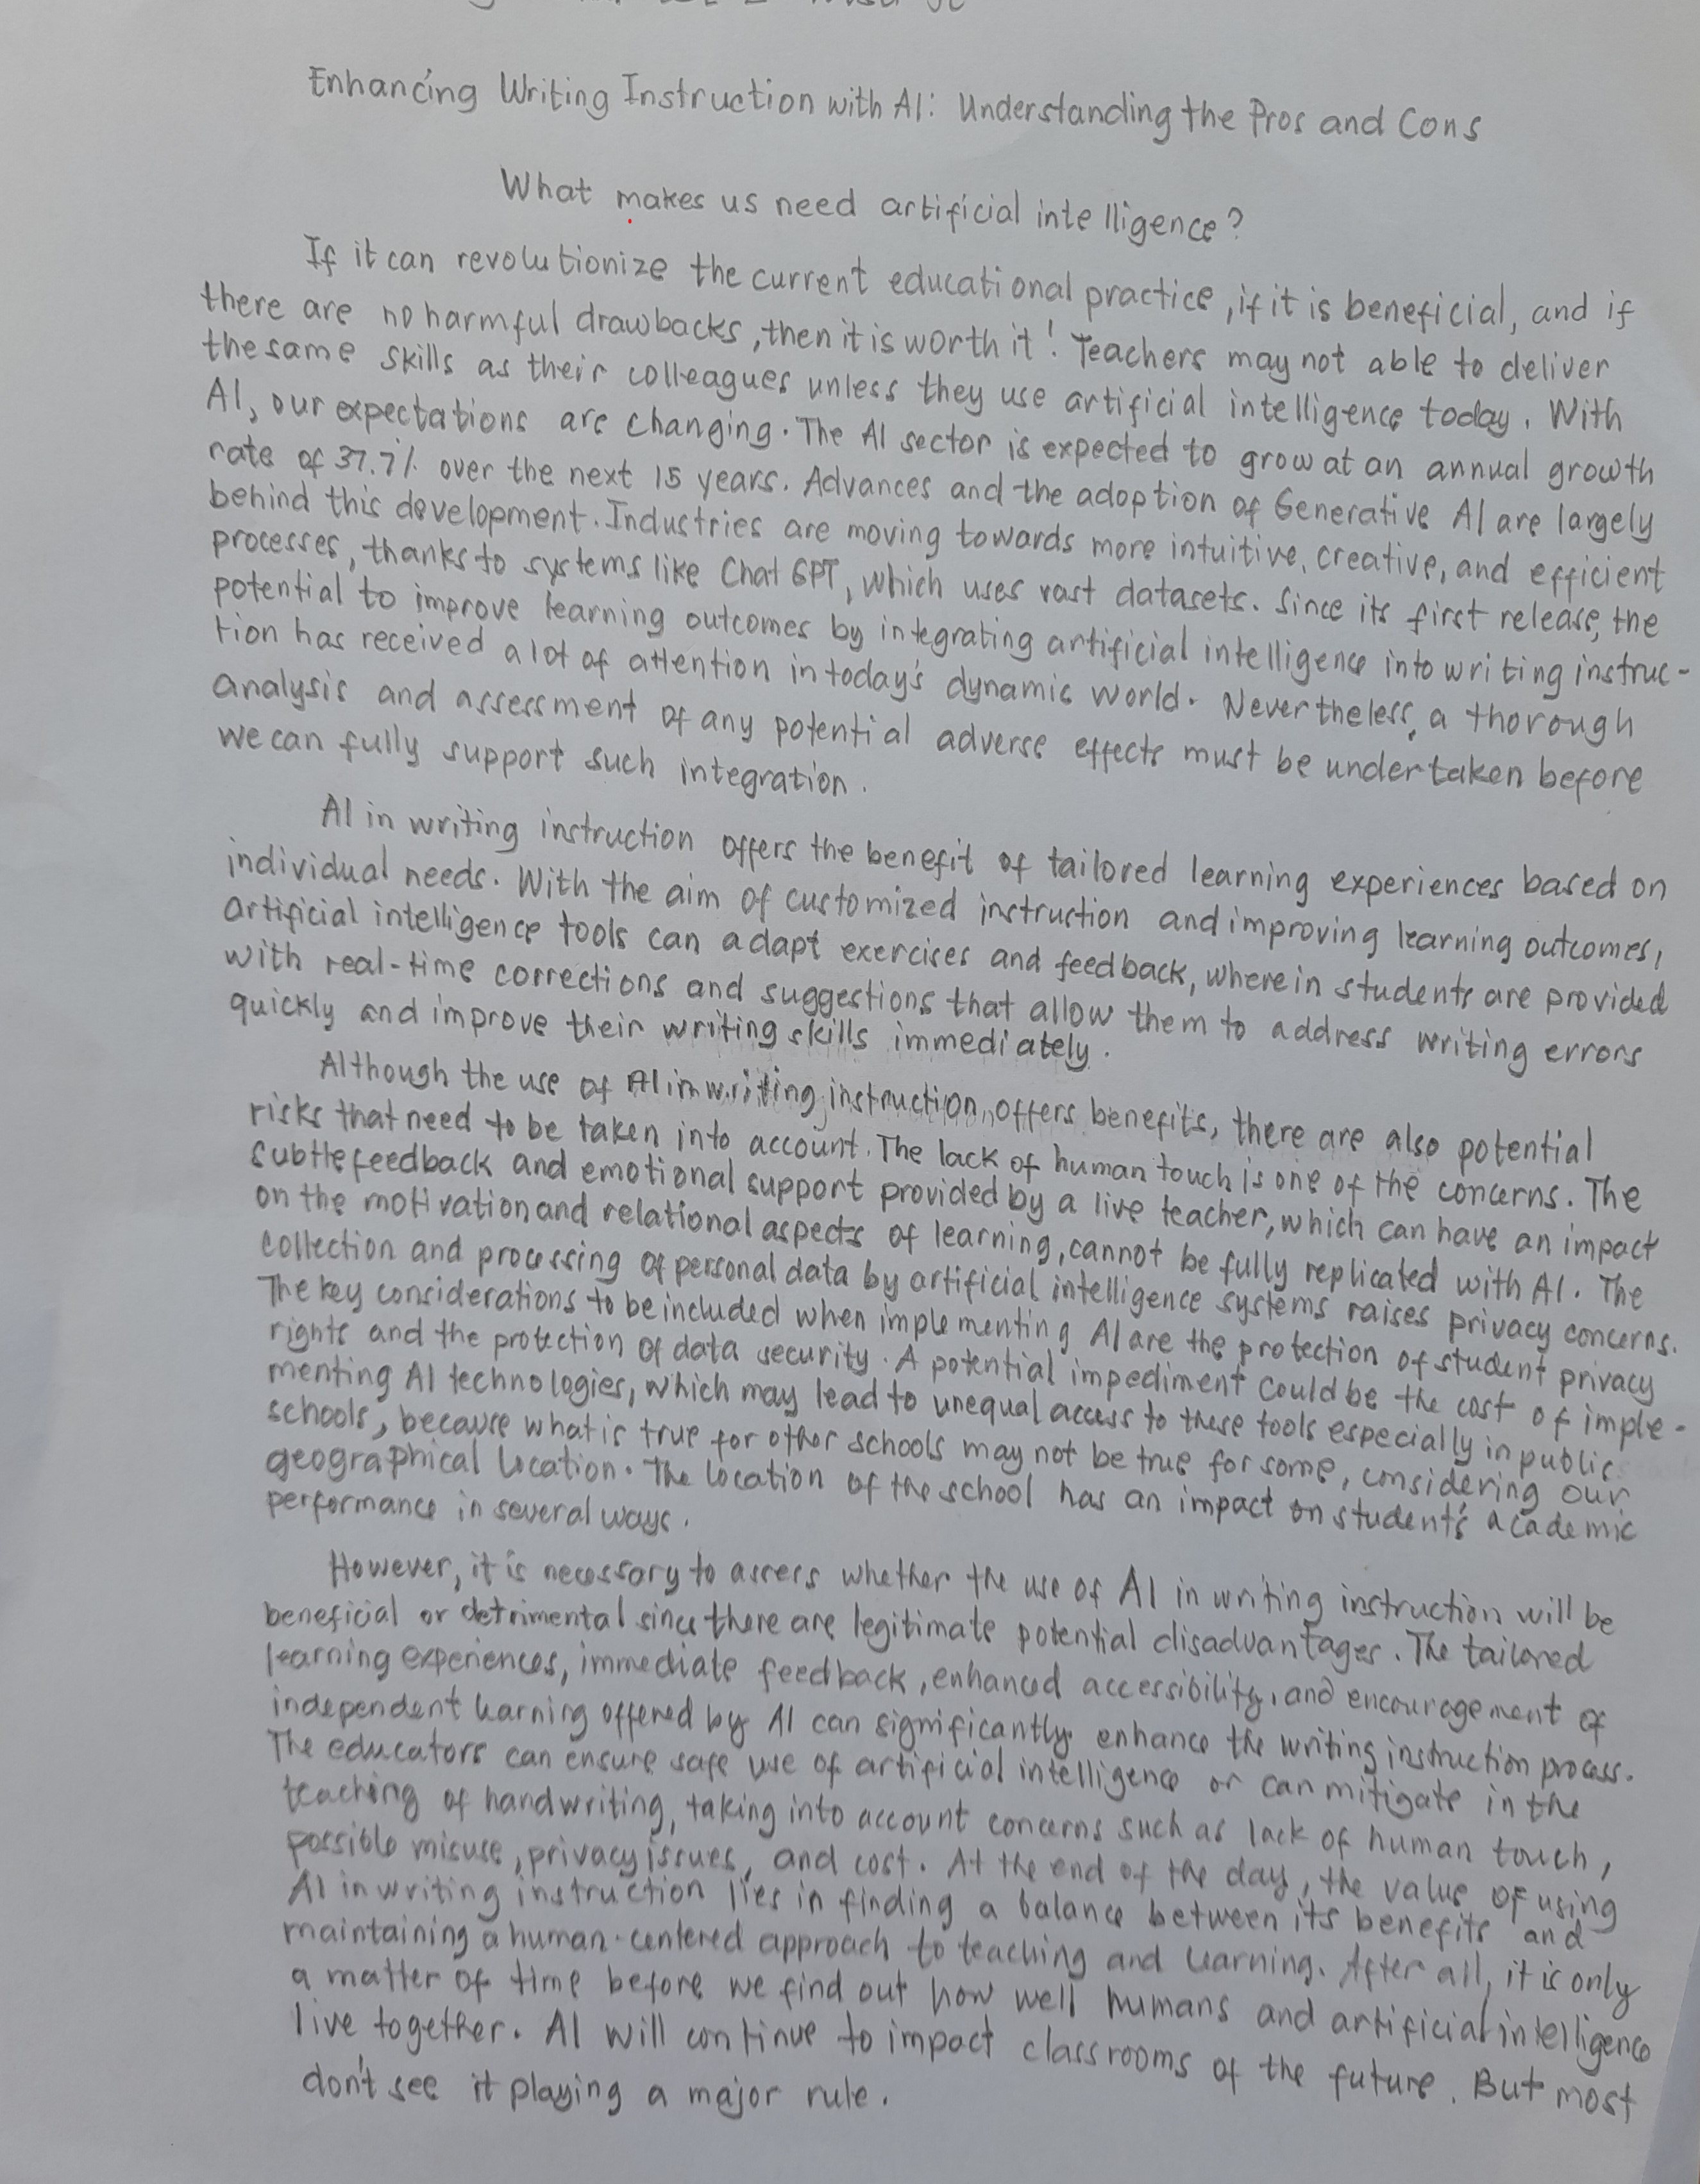 Enhancing Writing Instruction with AI: Understanding the Pros and Cons
What makes us need artificial intelligence?
If it can revolutionize the current educational practice, if it is beneficial, and if
there are no harmful drawbacks, then it is worth it! Teachers may not able to deliver
the same skills as their colleagues unless they use artificial intelligence today. With
AI, our expectations are changing. The AI sector is expected to grow at an annual growth
rate of 37.7% over the next 15 years. Advances and the adoption of Generative AI are largely
behind this development. Industries are moving towards more intuitive, creative, and efficient
processes, thanks to systems like Chat GPT, which uses vast datasets. Since its first release, the
potential to improve learning outcomes by integrating artificial intelligence into writing instruc-
tion has received a lot of attention in today's dynamic world. Nevertheless, a thorough
analysis and assessment of any potential adverse effects must be undertaken before
we can fully support such integration.
AI in writing instruction offers the benefit of tailored learning experiences based on
individual needs. With the aim of customized instruction and improving learning outcomes,
artificial intelligence tools can adapt exercises and feedback, wherein students are provided
with real-time corrections and suggestions that allow them to address writing errors
quickly and improve their writing skills immediately.
Although the use of AI in writing instruction offers benefits, there are also potential
risks that need to be taken into account. The lack of human touch is one of the concerns. The
subtle feedback and emotional support provided by a live teacher, which can have an impact
on the motivation and relational aspects of learning, cannot be fully replicated with AI. The
collection and processing of personal data by artificial intelligence systems raises privacy concerns.
The key considerations to be included when implementing AI are the protection of student privacy
rights and the protection of data security. A potential impediment could be the cost of imple-
menting AI technologies, which may lead to unequal access to these tools especially in public
schools, because what is true for other schools may not be true for some, considering our
geographical location. The location of the school has an impact on student's academic
performance in several ways.
However, it is necessary to assess whether the use of AI in writing instruction will be
beneficial or detrimental since there are legitimate potential disadvantages. The tailored
learning experiences, immediate feedback, enhanced accessibility, and encouragement of
independent learning offered by AI can significantly enhance the writing instruction process.
The educators can ensure safe use of artificial intelligence or can mitigate in the
teaching of handwriting, taking into account concerns such as lack of human touch,
possible misuse, privacy issues, and cost. At the end of the day, the value of using
AI in writing instruction lies in finding a balance between its benefits and
maintaining a human-centered approach to teaching and learning. After all, it is only
a matter of time before we find out how well humans and artificial intelligence
live together. AI will continue to impact classrooms of the future. But most
don't see it playing a major rule.